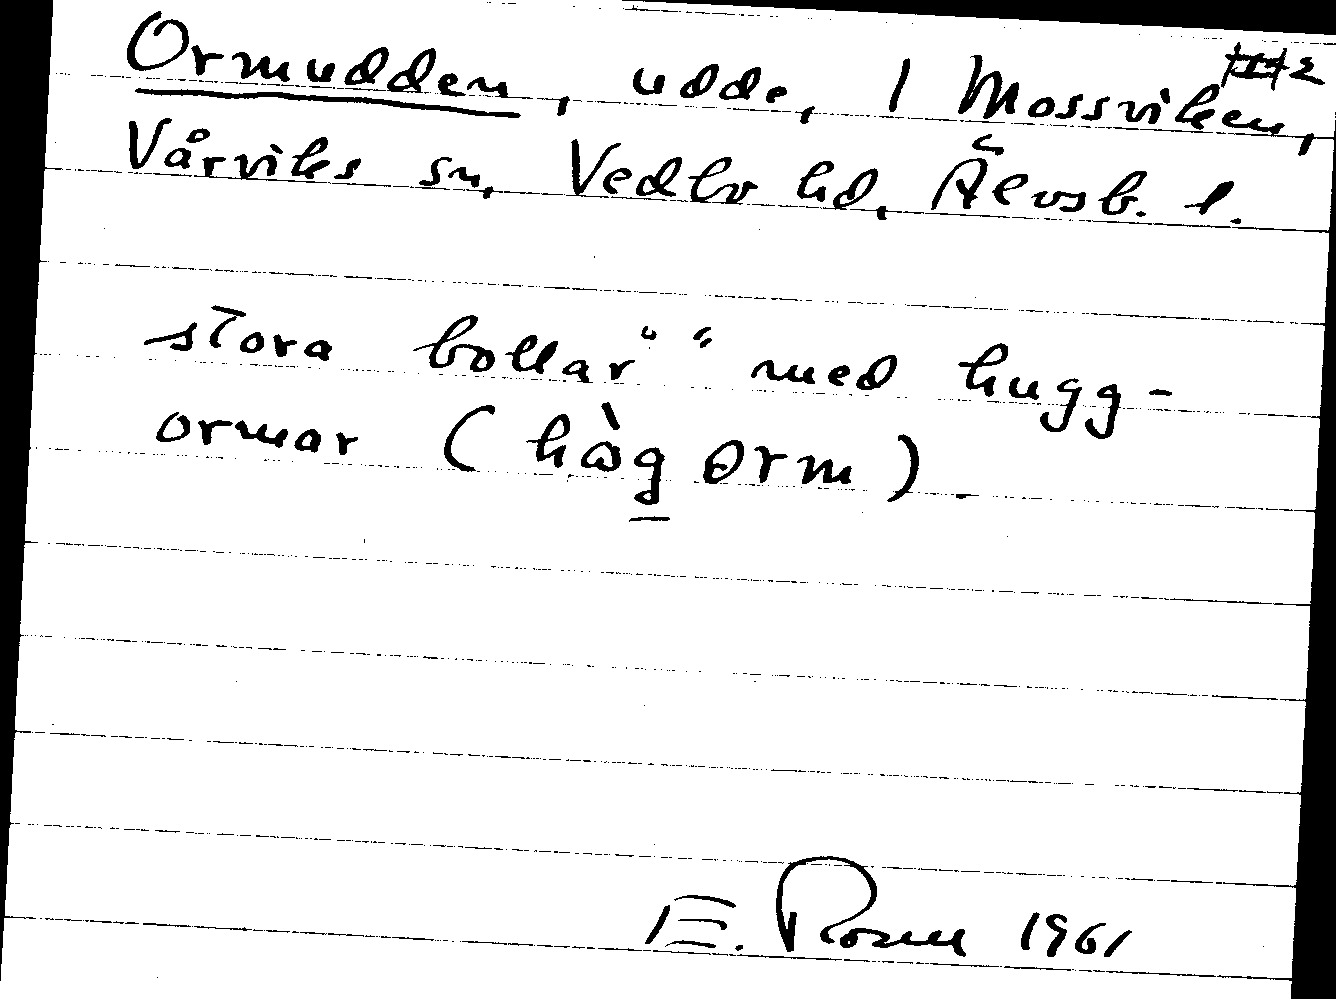 Ormudden, udde, 1 Mossviken,
Vårviks sn, Vedbo hd, Älvsb. l.
stora bollar" " med hugg-
ormar (hàg orm).
E. Rosell 1961